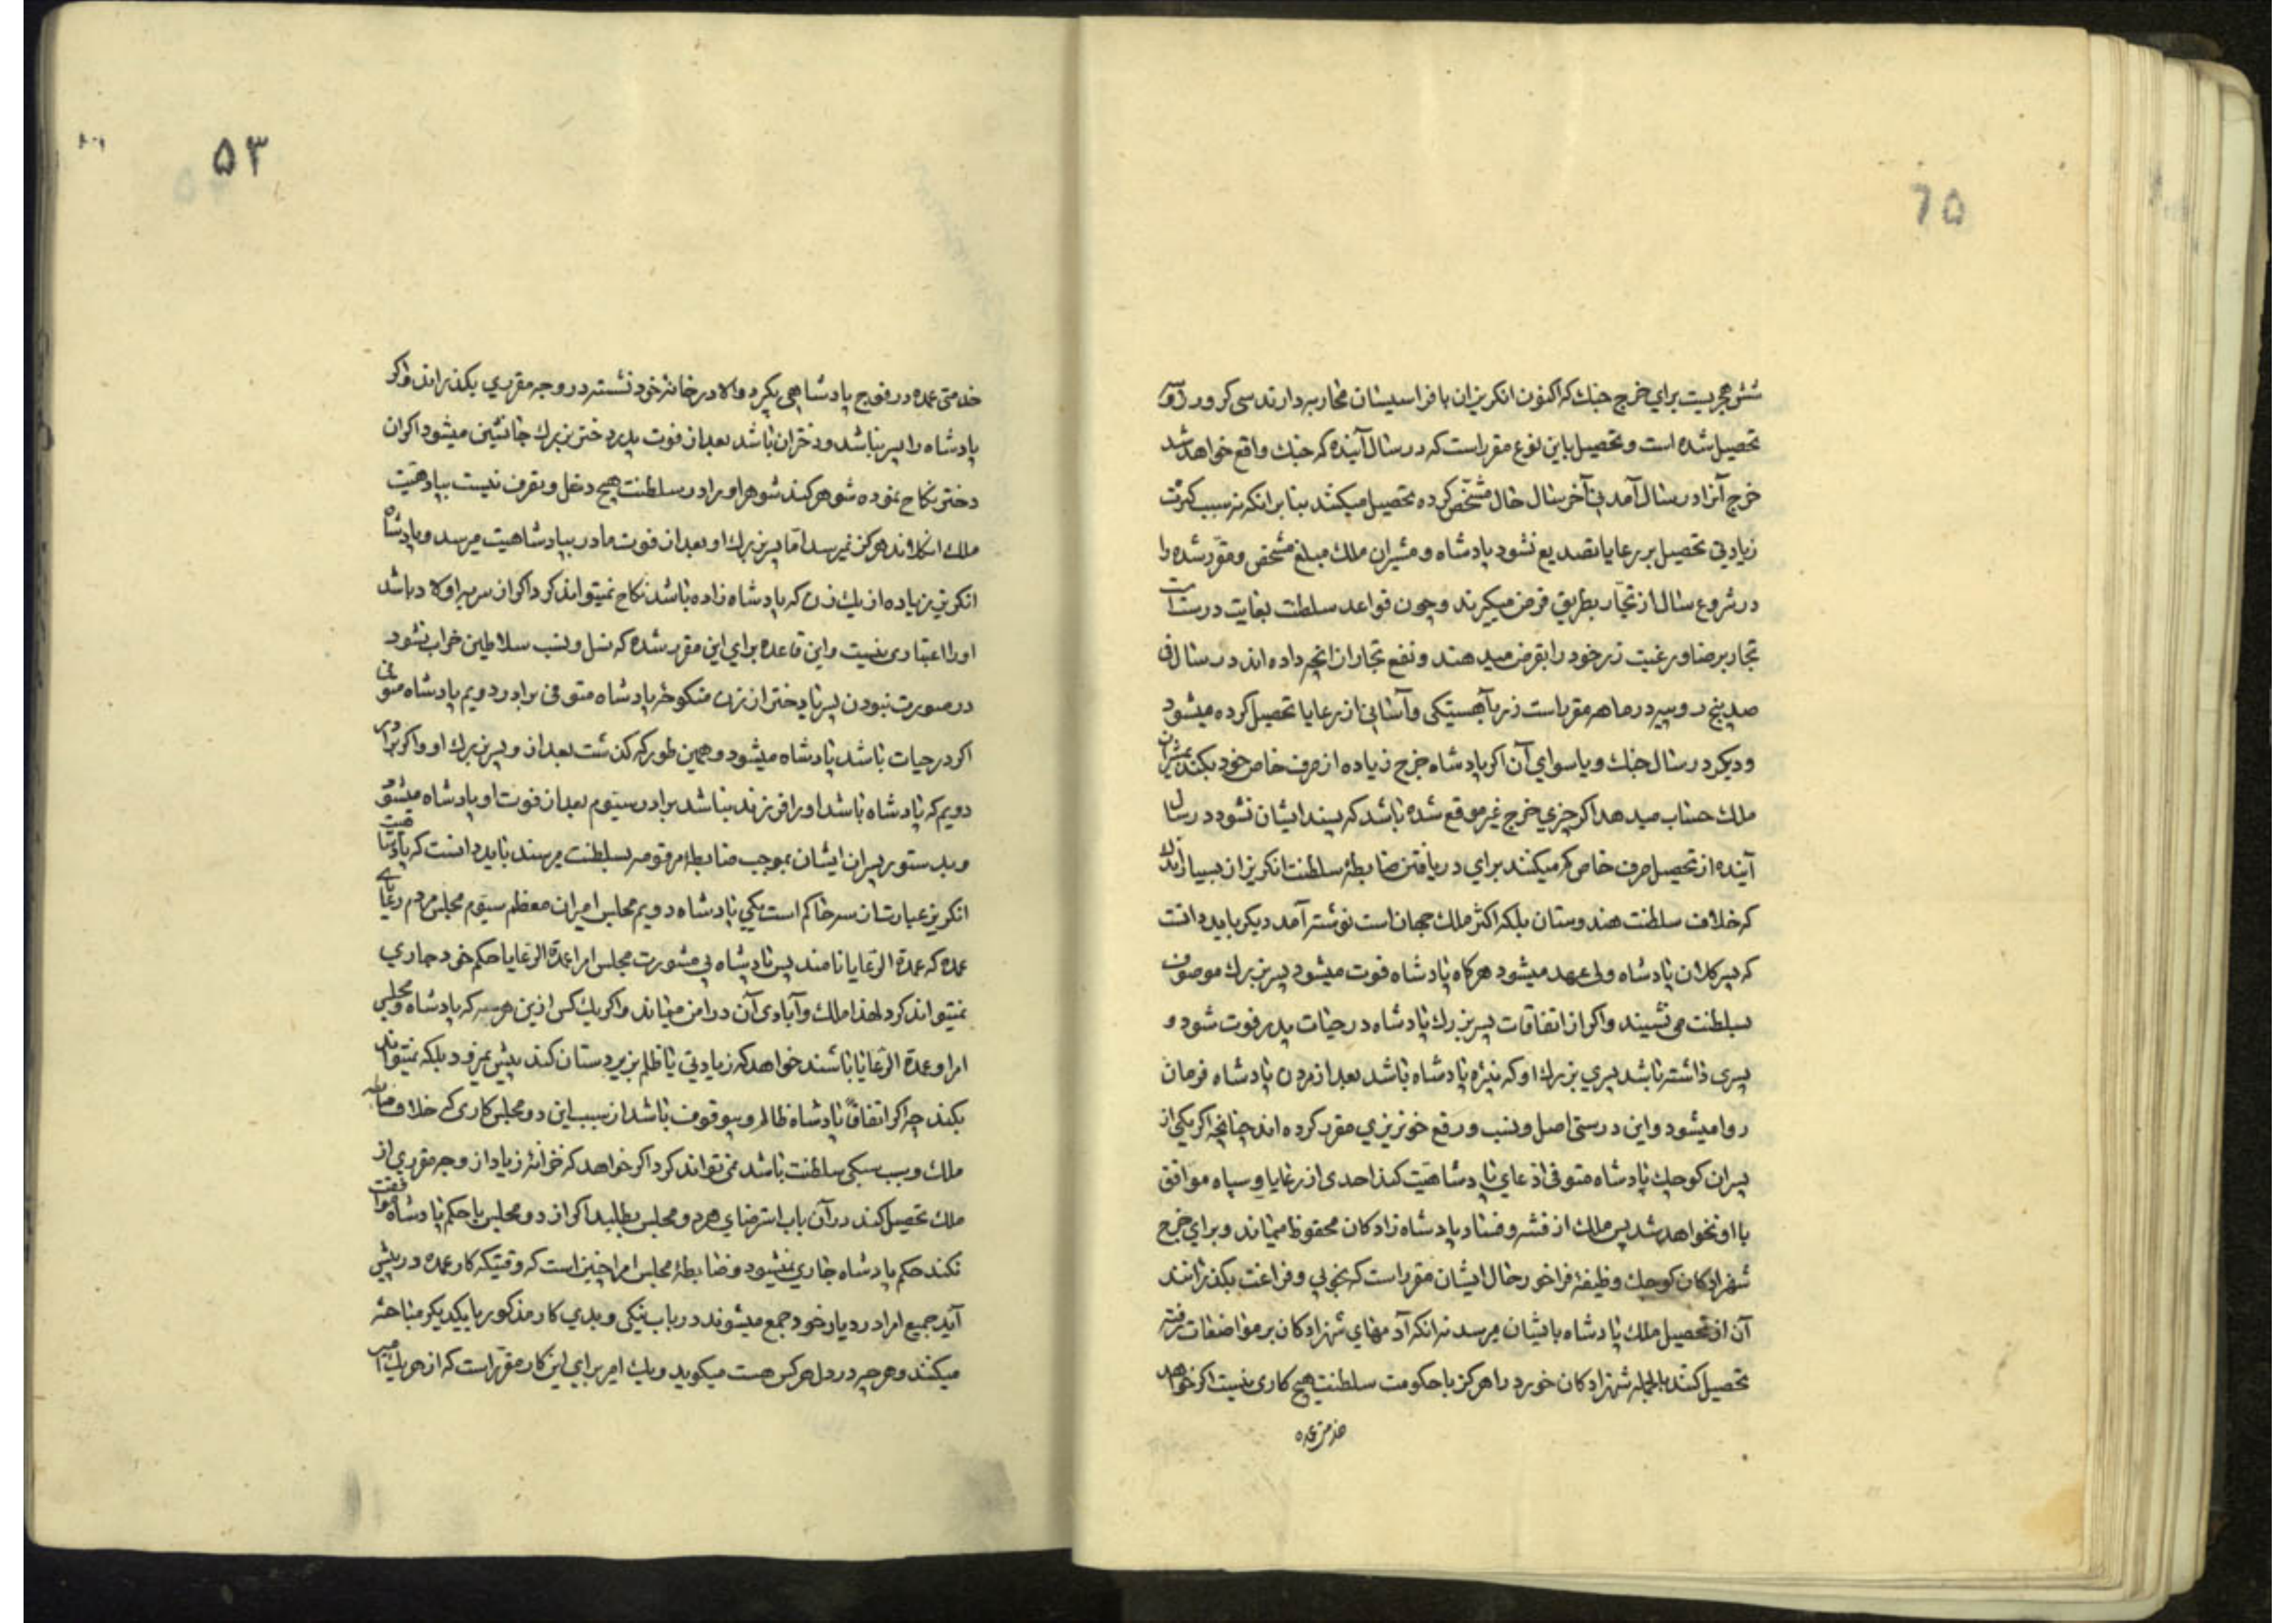 شش هجریست برای خرج جنك که اکنون انکریزان با فراسیسان محاربه دارند سی کرور روپیه
تحصیل شده است و تحصیل باین نوع مقرر است که در سال آینده که جنك واقع خواهد شد
خرج آنرا در سال آمدنی آخر سال حال مشخّص کرده تحصیل میکنند بنا برانکه نه سبب کثرت
زیادتی تحصیل بر رعایا تصدیع نشود پادشاه و مشیران ملك مبلغ مشخص و مقرّر شده را
در شروع سال از تجّار بطریق قرض میکیرند و چون قواعد سلطنت بغایت درست است
تجار برضا و رغبت زر خود را بقرض میدهند و نفع تجاران انچه داده اند در سال فی
صد پنج روپیه در ماهه مقرر است زر بآهستیکی و آسانی از رعایا تحصیل کرده میشود
و دیکر در سال جنك و یا سوای آن اکر پادشاه خرج زیاده از صرف خاص خود بکند بمشیران
ملك حساب میدهد اکر چیزی خرج غیر موقع شده باشد که پسند ایشان نشود در سال
آینده از تحصیل صرف خاص کم میکنند برای دریافتن ضابطهٔ سلطنت انکریز از بسیار اندك
که خلاف سلطنت هندوستان بلکه اکثر ملك جهان است نوشته آمد دیکر باید دانست
که پسر کلان پادشاه ولی عهد میشود هرکاه پادشاه فوت میشود پسر بزرك موصوف
بسلطنت می نشیند و اکر از اتفاقات پسر بزرك پادشاه در حیات پدر فوت شود و
پسری داشته باشد پسری بزرك او که نبیرهٔ پادشاه باشد بعد از مردن پادشاه فرمان
روا میشود و این درستی اصل و نسب و رفع خونریزی مقرر کرده اند چنانچه اکر یکی از
پسران کوچك پادشاه متوفی ادعای پادشاهیّت کند احدی از رعایا و سپاه موافق
با او نخواهد شد پس ملك از فتنه و فساد پادشاه زادکان محفوظ میماند و برای خرج
شهزادکان کوچك وظیفهٔ فراخور حال ایشان مقرر است که بخوبی و فراغت بکذرانند
آن از تحصیل ملك پادشاه بایشان میرسد نه انکه آدمهای شهزادکان بر مواضعات رفته
تحصیل کنند بالجمله شهزادکان خورد را هرکز با حکومت سلطنت هیچ کاری نیست اکر خواهد
خدمتی عمده
۵۳
خدمتی عمده در فوج پادشاهی بکیرد والا در خانهٔ خود نشسته در وجه مقرری بکذراند و اکر
پادشاه را پسر نباشد و دختران باشد بعد از فوت پدر دختر بزرك جانشین میشود اکر ان
دختر نکاح نموده شوهر کند شوهر او را در سلطنت هیچ دخل و تصرف نیست بپادشاهیّت
ملك انکلاند هرکز نمیرسد امّا پسر بزرك او بعد از فوت مادر بپادشاهیت میرسد و پادشاه
انکریز زیاده از یك زن که پادشاه زاده باشد نکاح نمیتواند کرد و اکر از سریه اولاد باشد
او را اعتباری نیست و این قاعده برای این مقرر شده که نسل و نسب سلاطین خراب نشود
در صورت نبودن پسر یا دختر از زن منکوحهٔ پادشاه متوفی برادر دویم پادشاه متوفی
اکر در حیات باشد پادشاه میشود و همین طور که کذشت بعد از و پسر بزرك او و اکر برادر
دویم که پادشاه باشد او را فرزند نباشد برادر سیّوم بعد از فوت او پادشاه میشود
و بدستور پسران ایشان بموجب ضابطهٔ مرقومه بسلطنت میرسند باید دانست که پادشاهیت
انکریز عبارت از سه حاکم است یکی پادشاه دویم مجلس امیران معظم سیّوم مجلس مردم رعایای
عمده که عمدة الرّعایا نامند پس پادشاه بی مشورت مجلس امرا عمدة الرّعایا حکم خود جاری
نمیتواند کرد لهذا ملك و آبادی آن در امن میماند و اکر یك کس ازین هر سه که پادشاه و مجلس
امرا و عمدة الرّعایا باشند خواهد که زیادتی یا ظلم بزیردستان کند پیش نمیرود بلکه نمیتواند
بکند چرا که اکر اتفاقاً پادشاه ظالم و بیوقوف باشد از سبب این دو مجلس کاری که خلاف
ملك و سبب سبکی سلطنت باشد نمی تواند کرد اکر خواهد که خزانهٔ زیاد از وجه مقرری از
ملك تحصیل کند در آن باب استرضای هر دو مجلس بطلبد اکر از دو مجلس با حکم پادشاه موافقت
نکند حکم پادشاه جاری نمیشود و ضابطهٔ مجلس امرا چنین است که وقتیکه کار عمده در پیش
آید جمیع امرا در دیار خود جمع میشوند در باب نیکی و بدی کار مذکور با یکدیکر مباحثه
میکنند و هر چه در دل هر کس هست میکوید و یك امیر برای این کار مقرّر است که از هر یك امیر